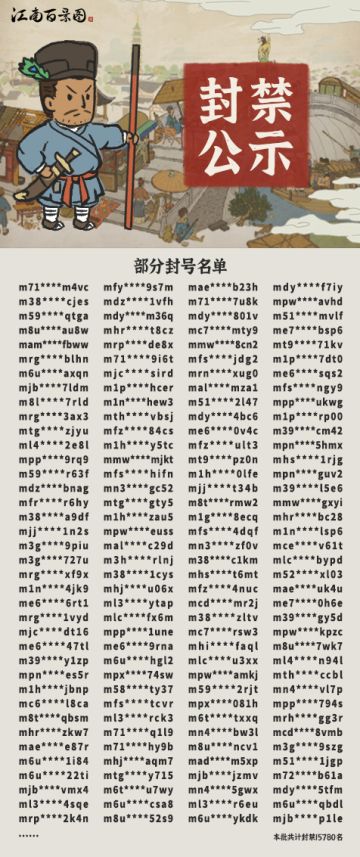 江南百景图
封禁
公示
部分封号名单
m71****m4vc mfy****9s7m mae****b23h mdy****f7iy
m38****cjes mdz****1vfh m71****7u8k mpw****avhd
m59****qtga mdy****m36q mdy****801v m51****mvlf
m8u****au8w mhr****t8cz mc7****mty9 me7****bsp6
mam****fbww mrp****de8x mmw****8cn2 mt9****71kv
mrg****blhn m71****9i6t mfs****jdg2 m1p****7dt0
m6u****axqn mjc****sird mrn****xug0 me6****sqs2
mjb****7ldm m1p****hcer mal****mza1 mfs****ngy9
m8l****7rld m1n****hew3 m51****2l47 mpp****ukwg
mrg****3ax3 mth****vbsj mdy****4bc6 m1p****rp00
mtg****zjyu mfz****84cs me6****0v4c m39****cm42
ml4****2e8l m1h****y5tc mfz****ult3 mpn****5hmx
mpp****9rq9 mmw****mjkt mt9****pz0n mhs****1rjg
m59****r63f mfs****hifn m1h****0lfe mpn****guv2
mdz****bnag mn3****gc52 mjj****t34b m39****l5e6
mfr****r6hy mtg****gty5 m8t****rmw2 mmw****gxyi
m38****a9df m1h****zau5 m1g****8ecq mhr****bc28
mjj****1n2s mpw****euss mfs****4dqf m1n****lsp6
m3g****9piu mal****c29d mn3****zf0v mce****v61t
m3g****727u m3h****rlnj m38****c1km mlc****bypd
mrg****xf9x m38****1cys mhs****t6mt m52****xl03
m1n****4jk9 mhj****u06x mfz****4nuc mae****uk4u
me6****6rt1 ml3****ytap mcd****mr2j me7****0h6e
mrg****1vyd mlc****fx6m m38****zltv m39****gy5d
mjc****dt16 mpp****1une mc7****rsw3 mpw****kpzc
me6****47tl me6****9rna mhi****faql m8u****7wk7
m39****y1zp m6u****hgl2 mlc****u3xx ml4****n94l
mpn****es5r mpx****74sw mpw****amkj mth****ccbl
m1h****jbnp m58****ty37 m59****2rjt mn4****vl7p
mc6****l8ca mfs****tcvr mpx****081h mpp****794s
m8t****qbsm ml3****rck3 m6t****txxq mrh****gg3r
mhr****zkw7 m71****q1l9 mn4****bw3l mcd****8vmb
mae****e87r m71****hy9b m8u****ncv1 m3g****9szg
m6u****1i84 mhj****aqm7 mad****m5xp m51****1jgp
m6u****22ti mtg****y715 mjb****jzmv m72****b61a
mjb****vmx4 m6t****u7wy mn4****5gwx mdy****5tfm
ml3****4sqe m6u****csa8 ml3****r6eu m6u****qbdl
mrp****2k4n m8u****52s9 m6u****ykdk mjb****p1le
······ 本批共计封禁15780名